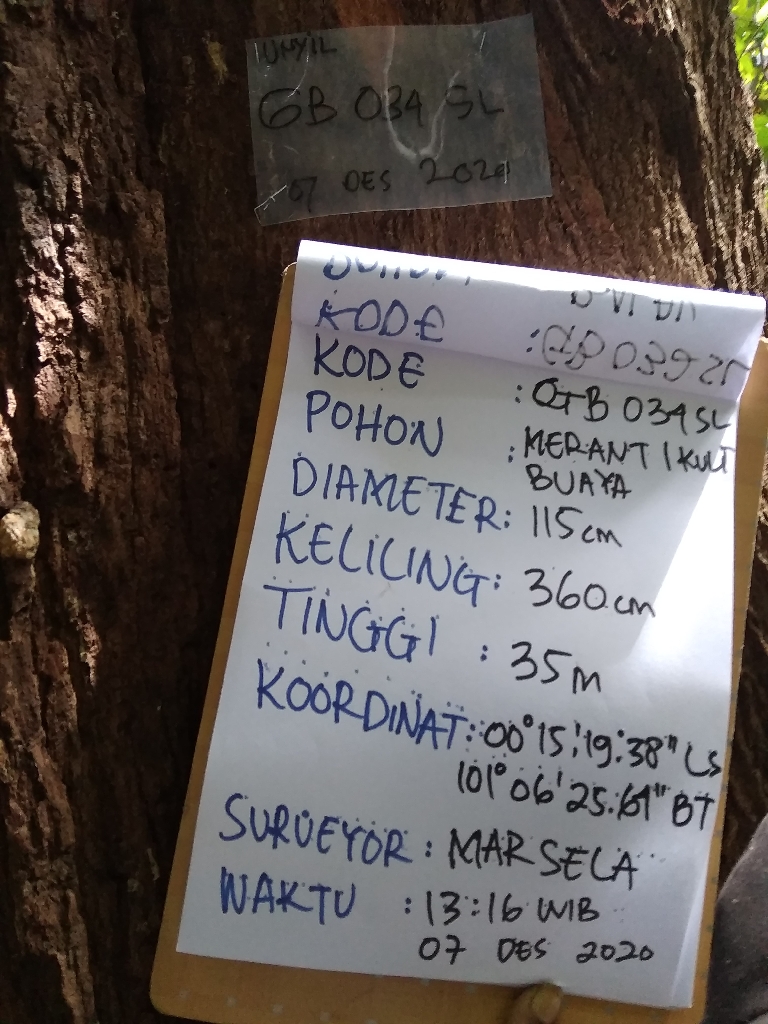 UNYIL
GB 034 SL
07 DES 2020
KODE
KODE : GTB 034 SL
POHON : MERANTI KULIT
BUAYA
DIAMETER: 115 cm
KELILING: 360 cm
TINGGI : 35 m
KOORDINAT: 00° 15' 19.38" LS
101° 06' 25.61" BT
SURVEYOR : MARSELA
WAKTU : 13:16 WIB
07 DES 2020